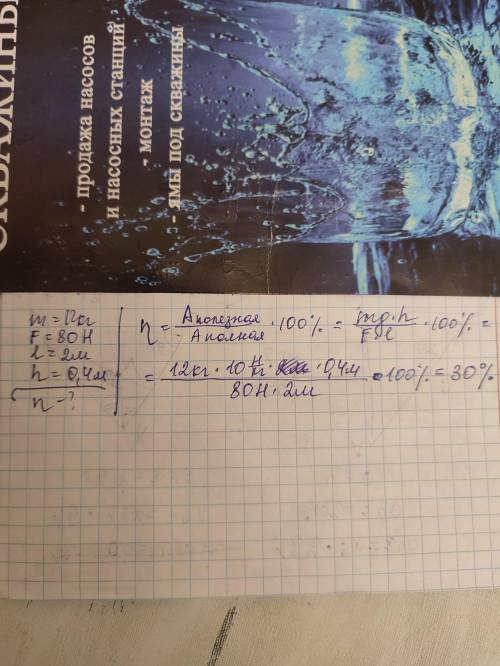 СКВАЖИНЫ
- продажа насосов
и насосных станций
- монтаж
- ямы под скважины
m = 12кг
F = 80Н
l = 2м
h = 0,4м
η - ?
η = Aполезная / Aполная · 100% = mg·h / F·l · 100% =
= 12кг · 10 Н/кг · 0,4м / 80Н · 2м · 100% = 30%